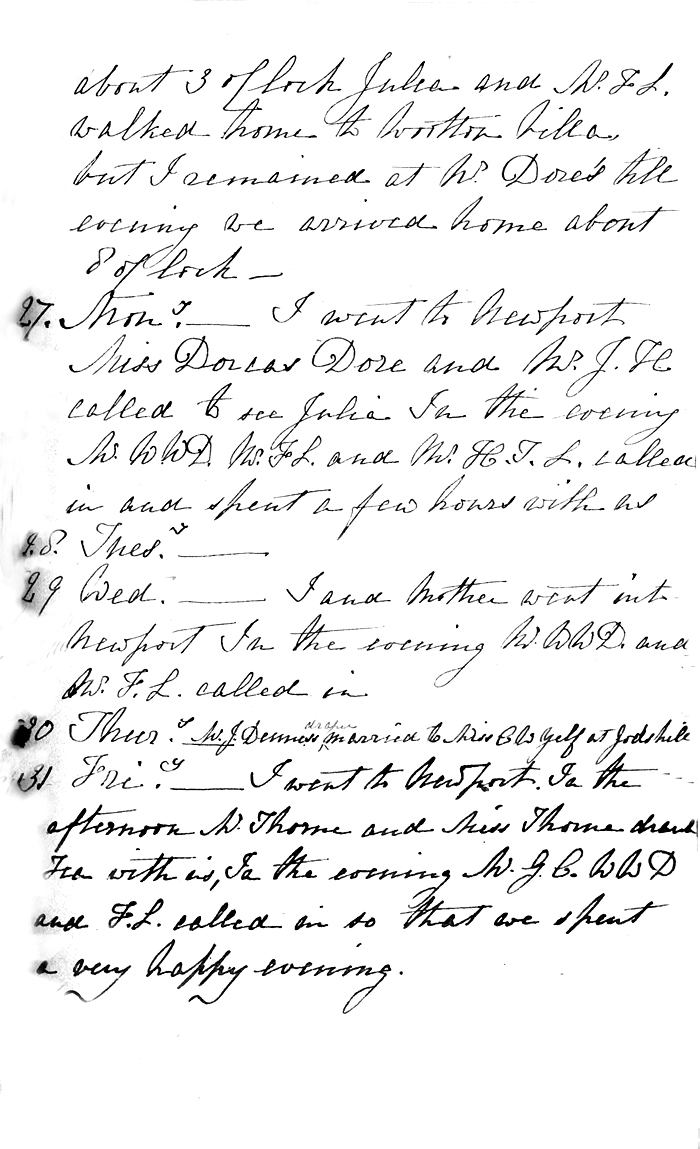 about 3 o'Clock Julia and Mr. F. L.
walked home to Wootton Villa,
but I remained at Mr. Dore's till
evening we arrived home about
8 o'Clock —
27. Mon.y — I went to Newport
Miss Dorcas Dore and Mr. J. H
called to see Julia In the evening
Mr. WWD. Mr. F L. and Mr. H. T. L. called
in and spent a few hours with us
28. Thes.y —
29 Wed. — I and Mother went into
Newport In the evening Mr. WWD. and
Mr. F. L. called in
30 Thur.y Mr. J. Denness draper married to Miss E W Yelf at Godshill
31 Fri.y — I went to Newport. In the
afternoon Mr Thorne and Miss Thorne drank
Tea with us, In the evening Mr. G. C. WWD
and F. L. called in so that we spent
a very happy evening.